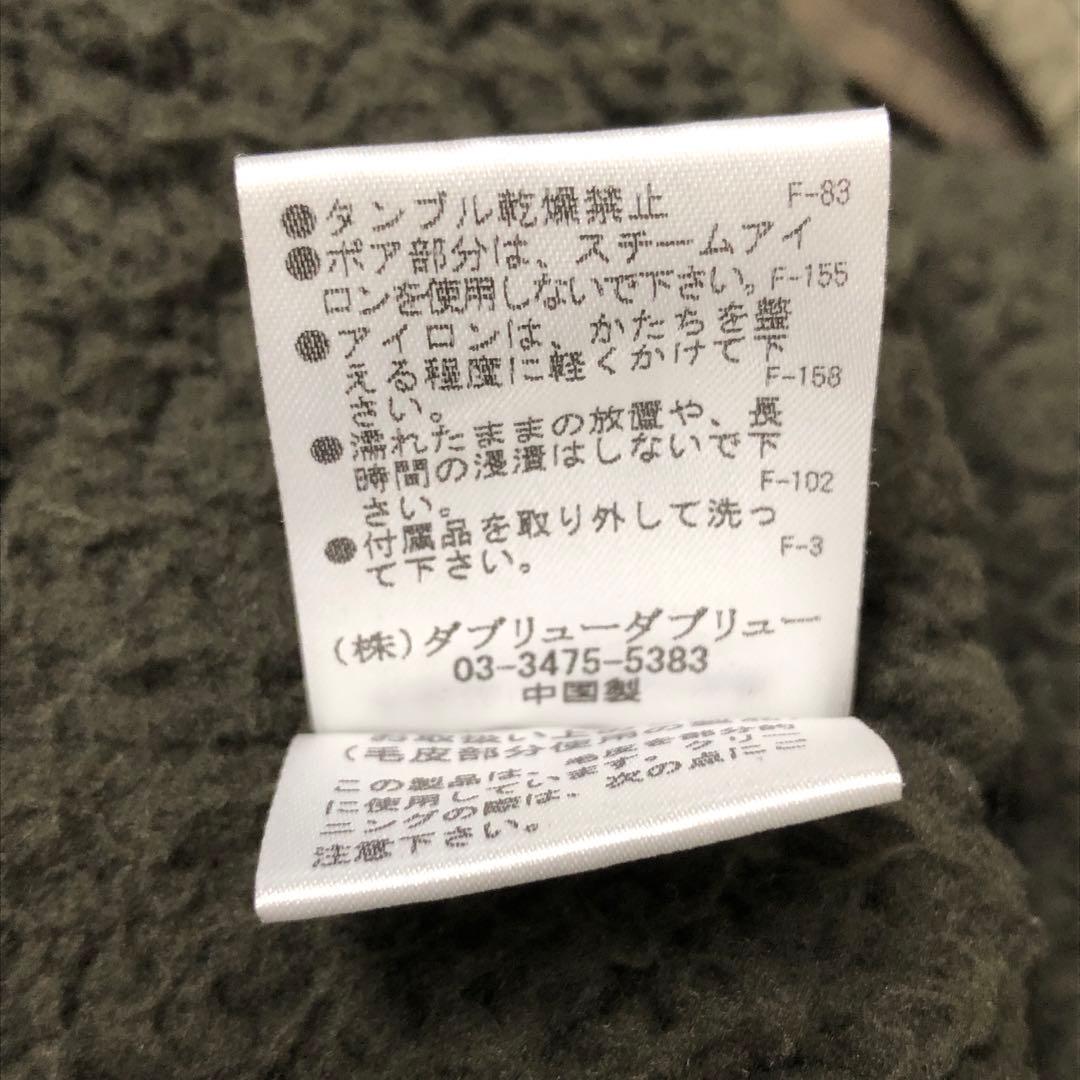 ●タンブル乾燥禁止 F-83
●ボア部分は、スチームアイ
ロンを使用しないで下さい。F-155
●アイロンは、かたちを整
える程度に軽くかけて下
さい。 F-158
●濡れたままの放置や、長
時間の浸漬はしないで下
さい。 F-102
●付属品を取り外して洗っ
て下さい。 F-3
(株)ダブリューダブリュー
03-3475-5383
中国製
お取扱い上
(毛皮部分使用
この製品は、毛皮を部分的
に使用しています。クリー
ニングの際は、次の点にご
注意下さい。